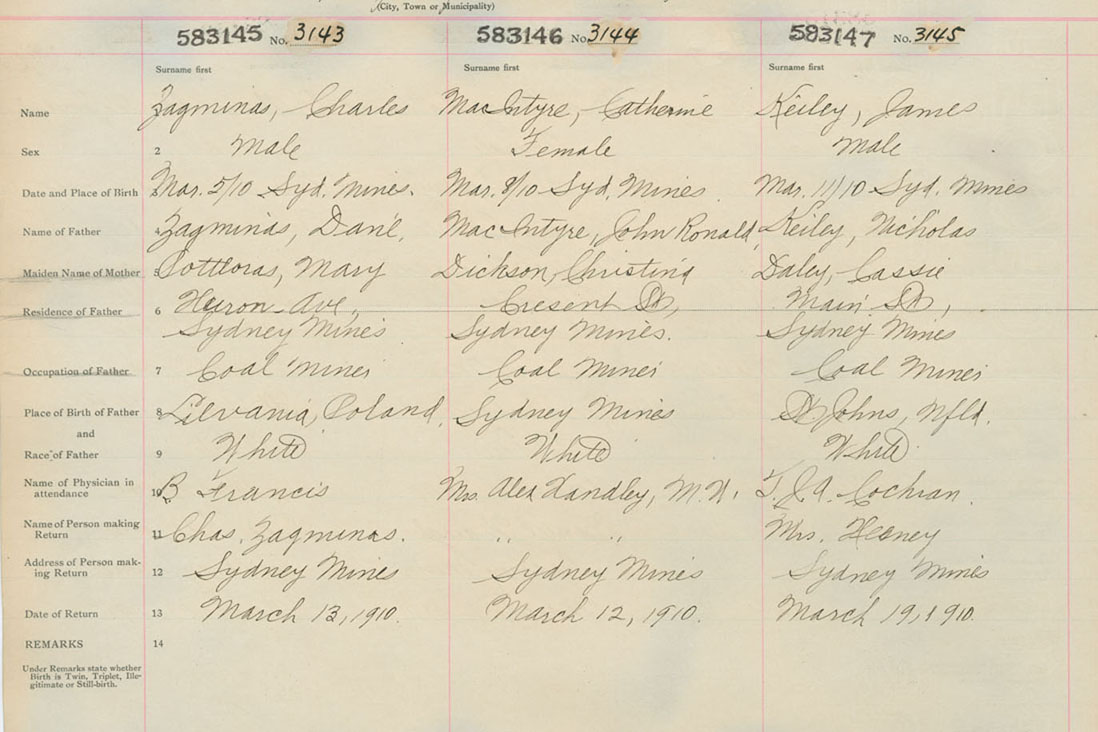 (City, Town or Municipality)
583145 No. 3143 583146 No. 3144 583147 No. 3145
Surname first Surname first Surname first
Name Zagminas, Charles MacIntyre, Catherine Keiley, James
Sex 2 Male Female Male
Date and Place of Birth Mar. 5/10 Syd. Mines. Mar. 8/10 Syd. Mines Mar. 11/10 Syd. Mines
Name of Father 4 Zagminas, MacIntyre, John Ronald Keiley, Nicholas
Maiden Name of Mother Mary Dickson, Christina Daley, Cassie
Residence of Father 6 Huron Ave, Cresent St, Main St,
Sydney Mines Sydney Mines. Sydney Mines
Occupation of Father 7 Coal Miner Coal Miner Coal Miner
Place of Birth of Father 8 Poland, Sydney Mines St. Johns, Nfld.
and
Race of Father 9 White White White
Name of Physician in
attendance 10 B Francis Mrs. Alex M. W. Cochran.
Name of Person making
Return 11 Chas. Zagminas. " " Mrs. Heeney
Address of Person mak-
ing Return 12 Sydney Mines Sydney Mines Sydney Mines
Date of Return 13 March 13, 1910. March 12, 1910. March 19, 1910.
REMARKS 14
Under Remarks state whether
Birth is Twin, Triplet, Ille-
gitimate or Still-birth.